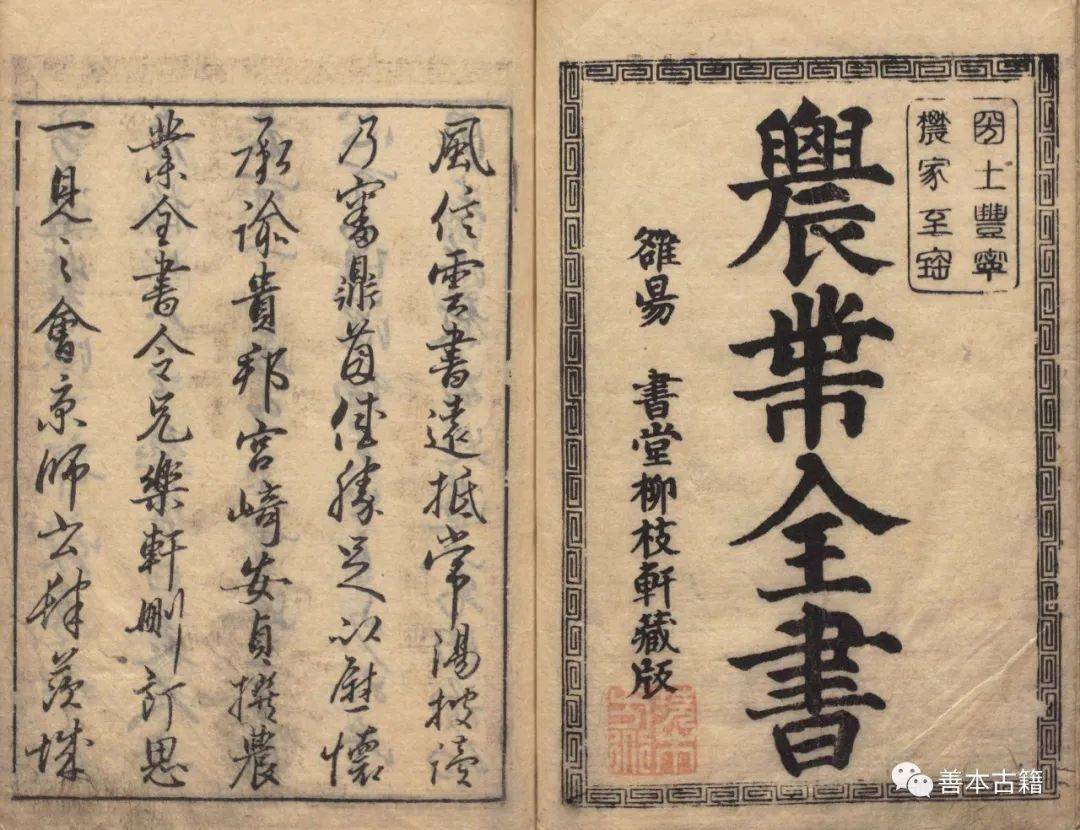 圀土豐寧
農家至寶
農業全書
雒昜　書堂柳枝軒藏版
風信雲書遠抵常陽披讀
乃審鼎茵佳勝足以慰懷
承諭貴邦宮崎安貞撰農
業全書令兄樂軒刪訂思
一見之會京師書肆茨城
善本古籍